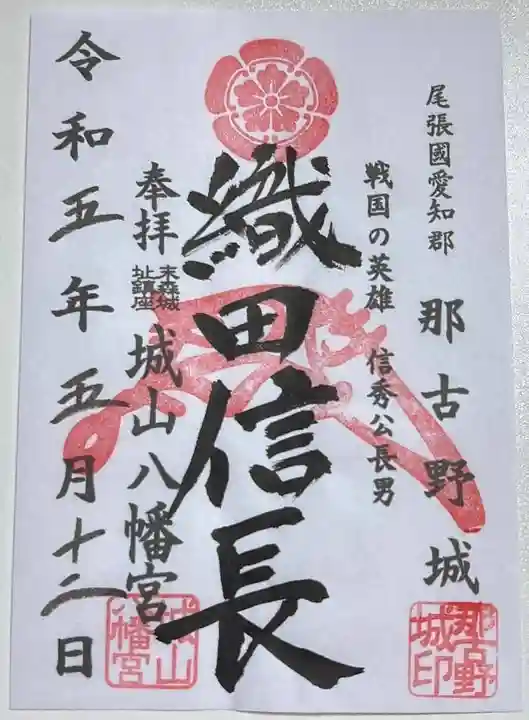 尾張國愛知郡
那古野城
那古野
城印
戦国の英雄 信秀公長男
織田信長
奉拝
末森城
址鎮座
城山八幡宮
城山
八幡宮
令和五年五月十二日